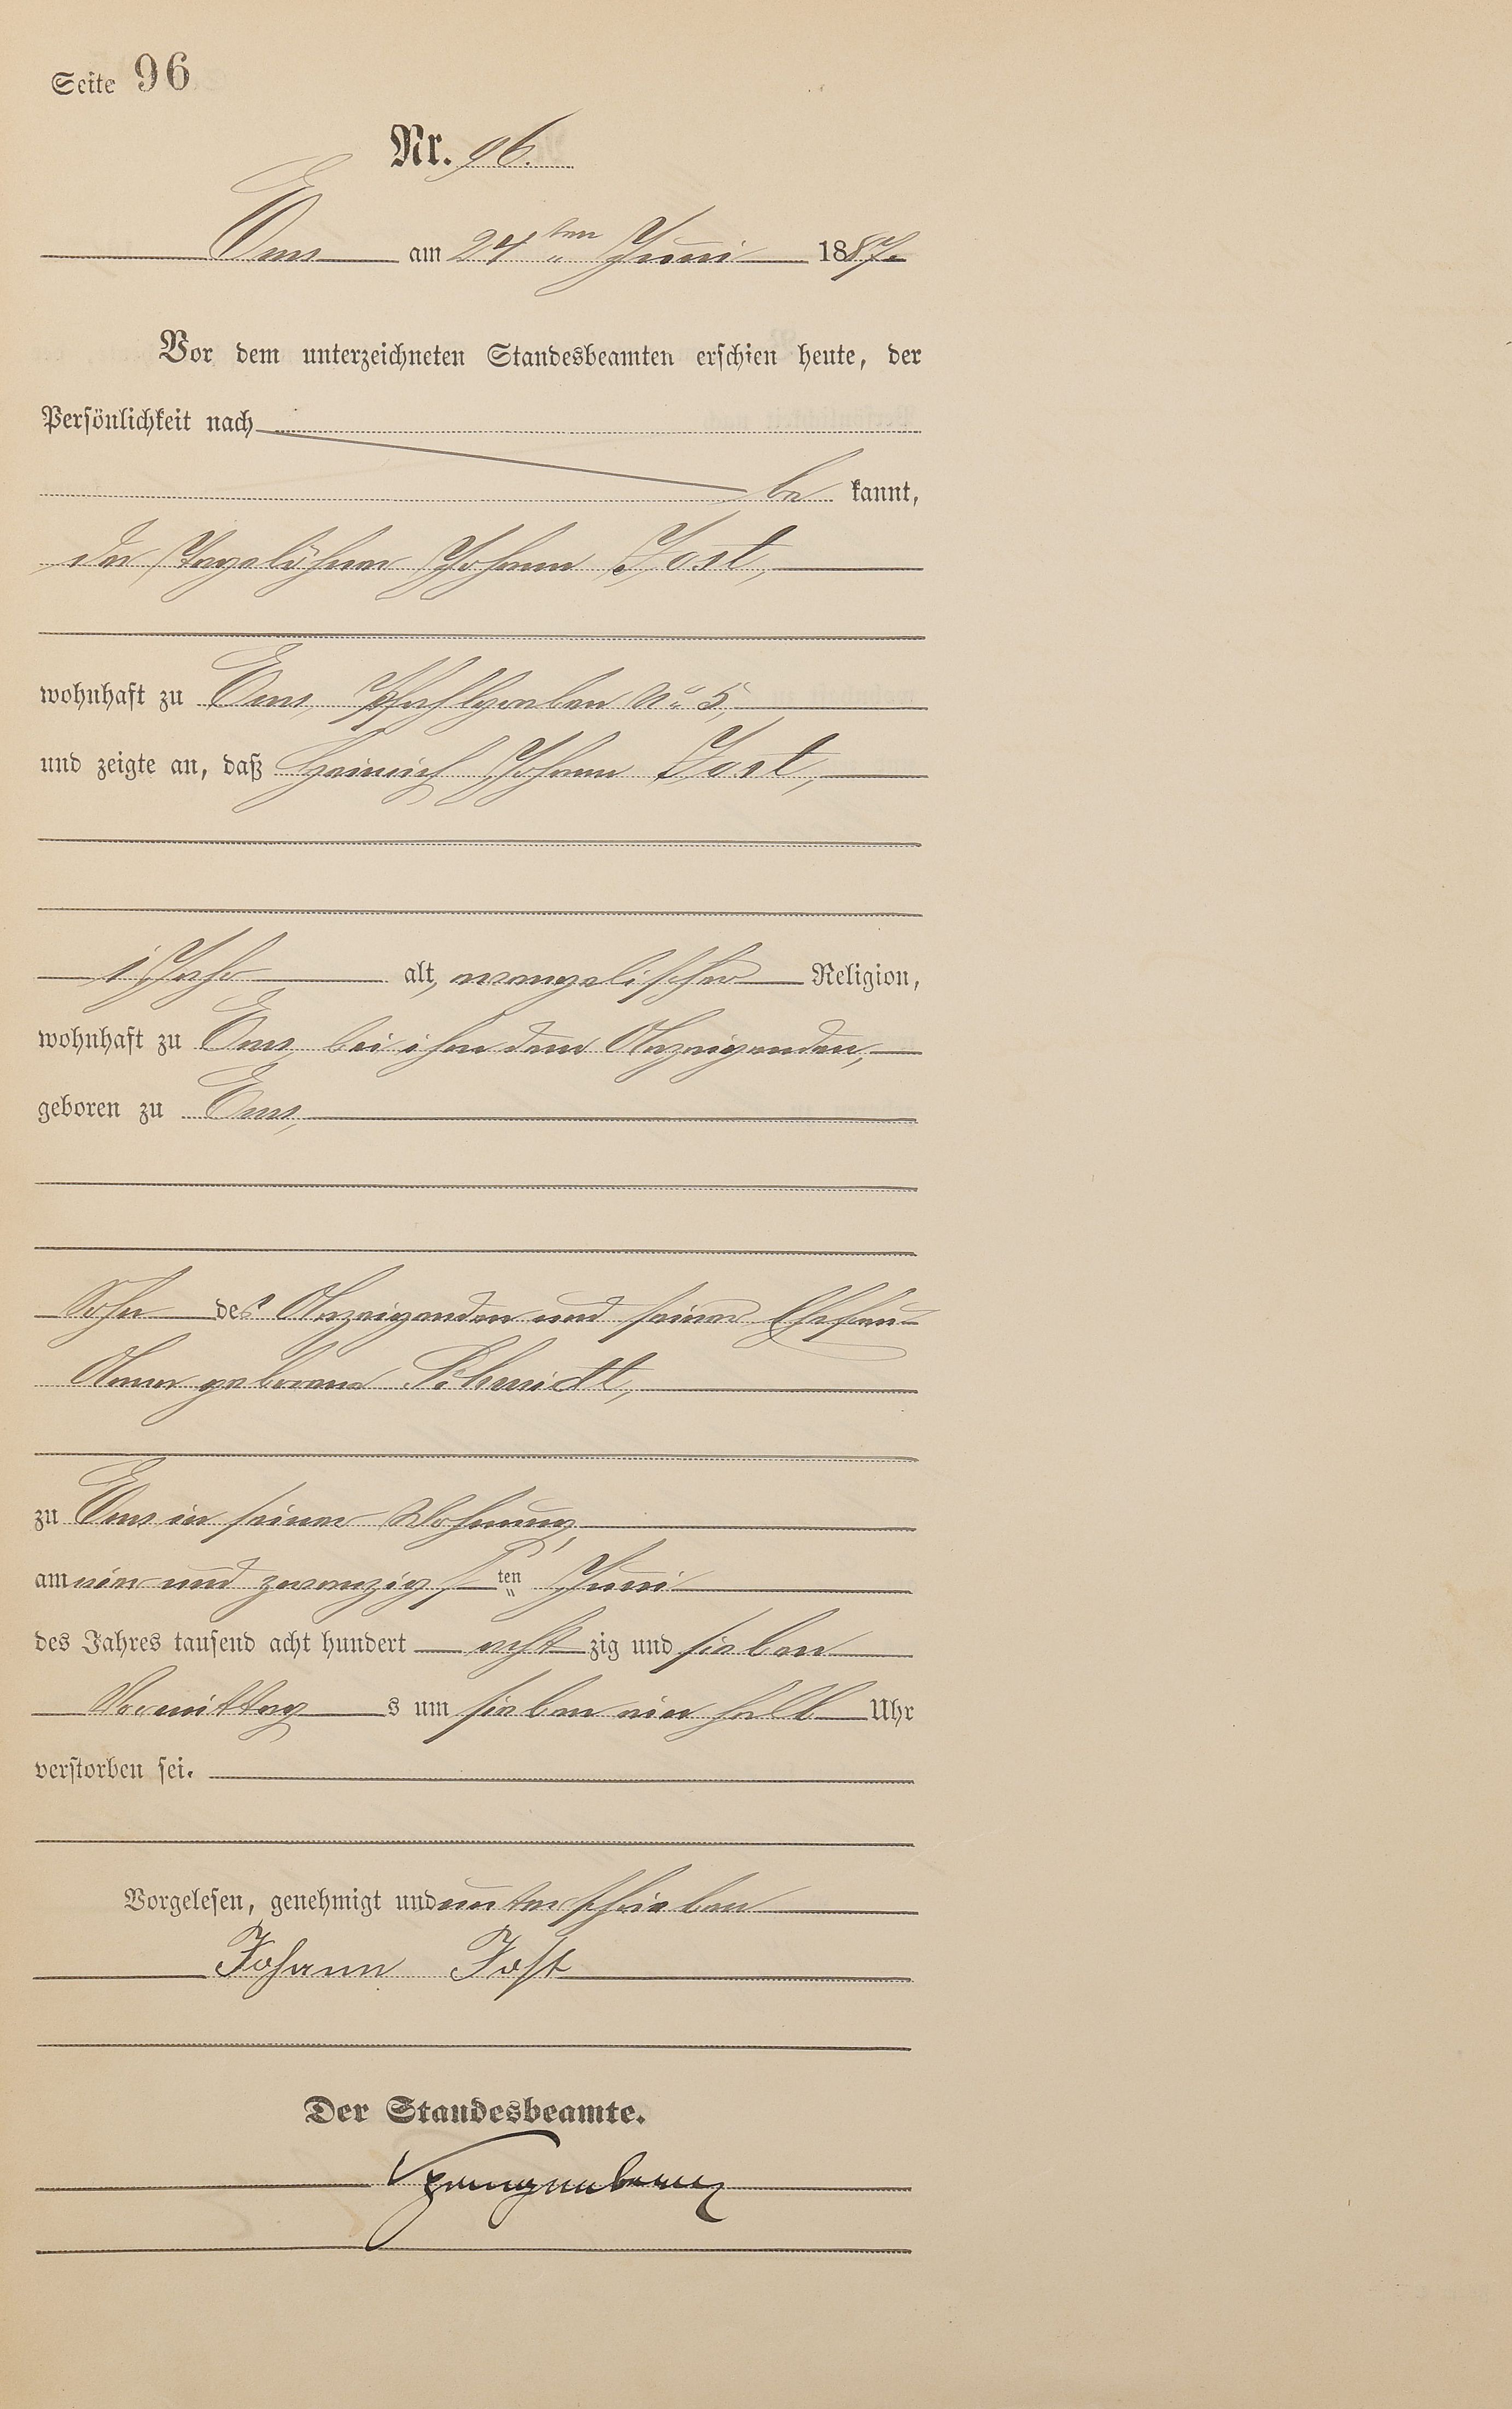 Seite 96
Nr. 96.
Ems am 24ten Juni 1887.
Vor dem unterzeichneten Standesbeamten erschien heute, der
Persönlichkeit nach
bekannt,
der Tagelöhner Johann Jost,
wohnhaft zu Ems, Pfahlgraben No 5,
und zeigte an, daß Heinrich Johann Jost,
1 Jahr alt, evangelischer Religion,
wohnhaft zu Ems bei ihm dem Anzeigenden,
geboren zu Ems,
Sohn des Anzeigenden und seiner Ehefrau
Anna geborene Schmidt,
zu Ems in seiner Wohnung,
am vier und zwanzigsten Juni
des Jahres tausend acht hundert achtzig und sieben
Vormittags um sieben ein halb Uhr
verstorben sei.
Vorgelesen, genehmigt und unterschrieben
Johann Jost
Der Standesbeamte.
Spangenberg